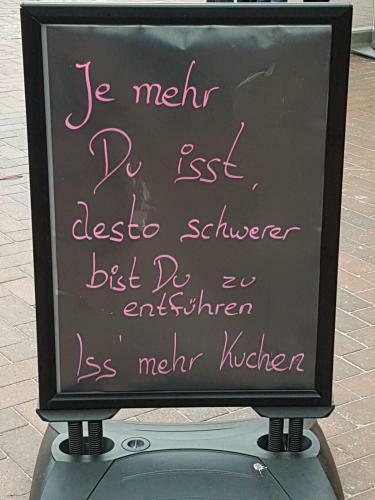 Je mehr
Du isst,
desto schwerer
bist Du zu
entführen
Iss' mehr Kuchen